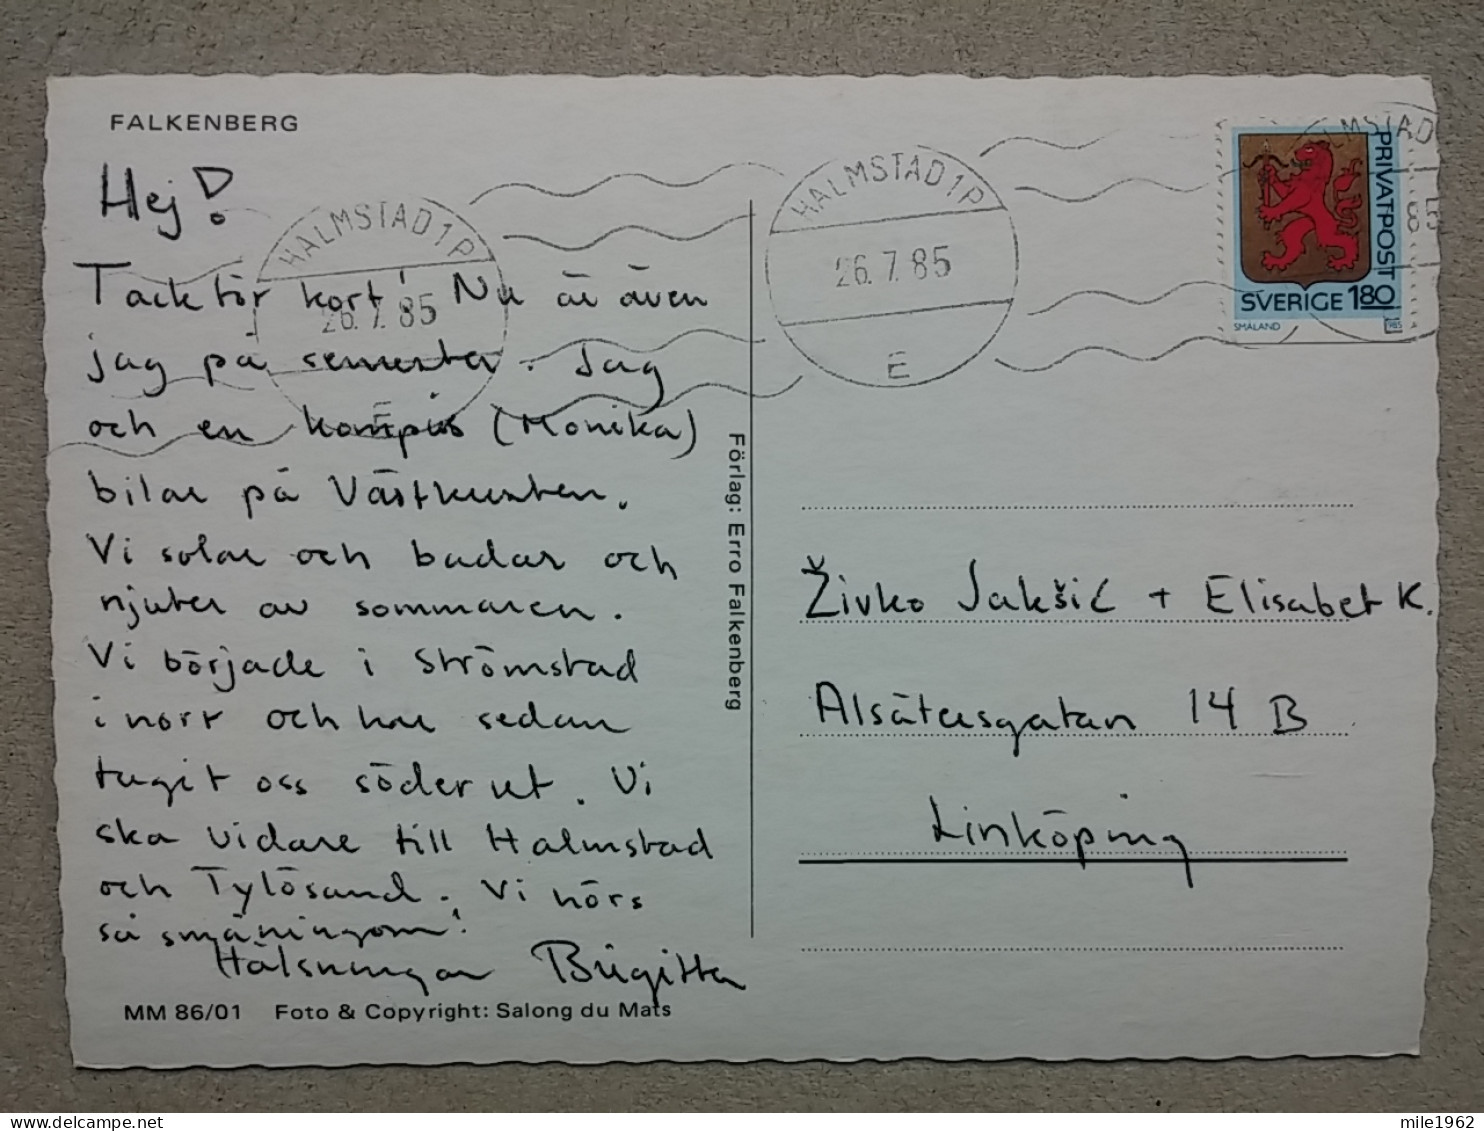 FALKENBERG
Hej!
Tack för kort! Nu är även
jag på semester. Jag
och en kompis (Monika)
bilar på Västkusten.
Vi solar och badar och
njuter av sommaren.
Vi började i Strömstad
i norr och har sedan
tagit oss söderut. Vi
ska vidare till Halmstad
och Tylösand. Vi hörs
så småningom!
Hälsningar Birgitta
MM 86/01 Foto & Copyright: Salong du Mats
Förlag: Erro Falkenberg
HALMSTAD 1 P
26.7.85
E
HALMSTAD 1 P
26.7.85
E
PRIVATPOST
SVERIGE 180
SMÅLAND
1985
Živko Jakšić + Elisabet K.
Alsätersgatan 14 B
Linköping
mile1962